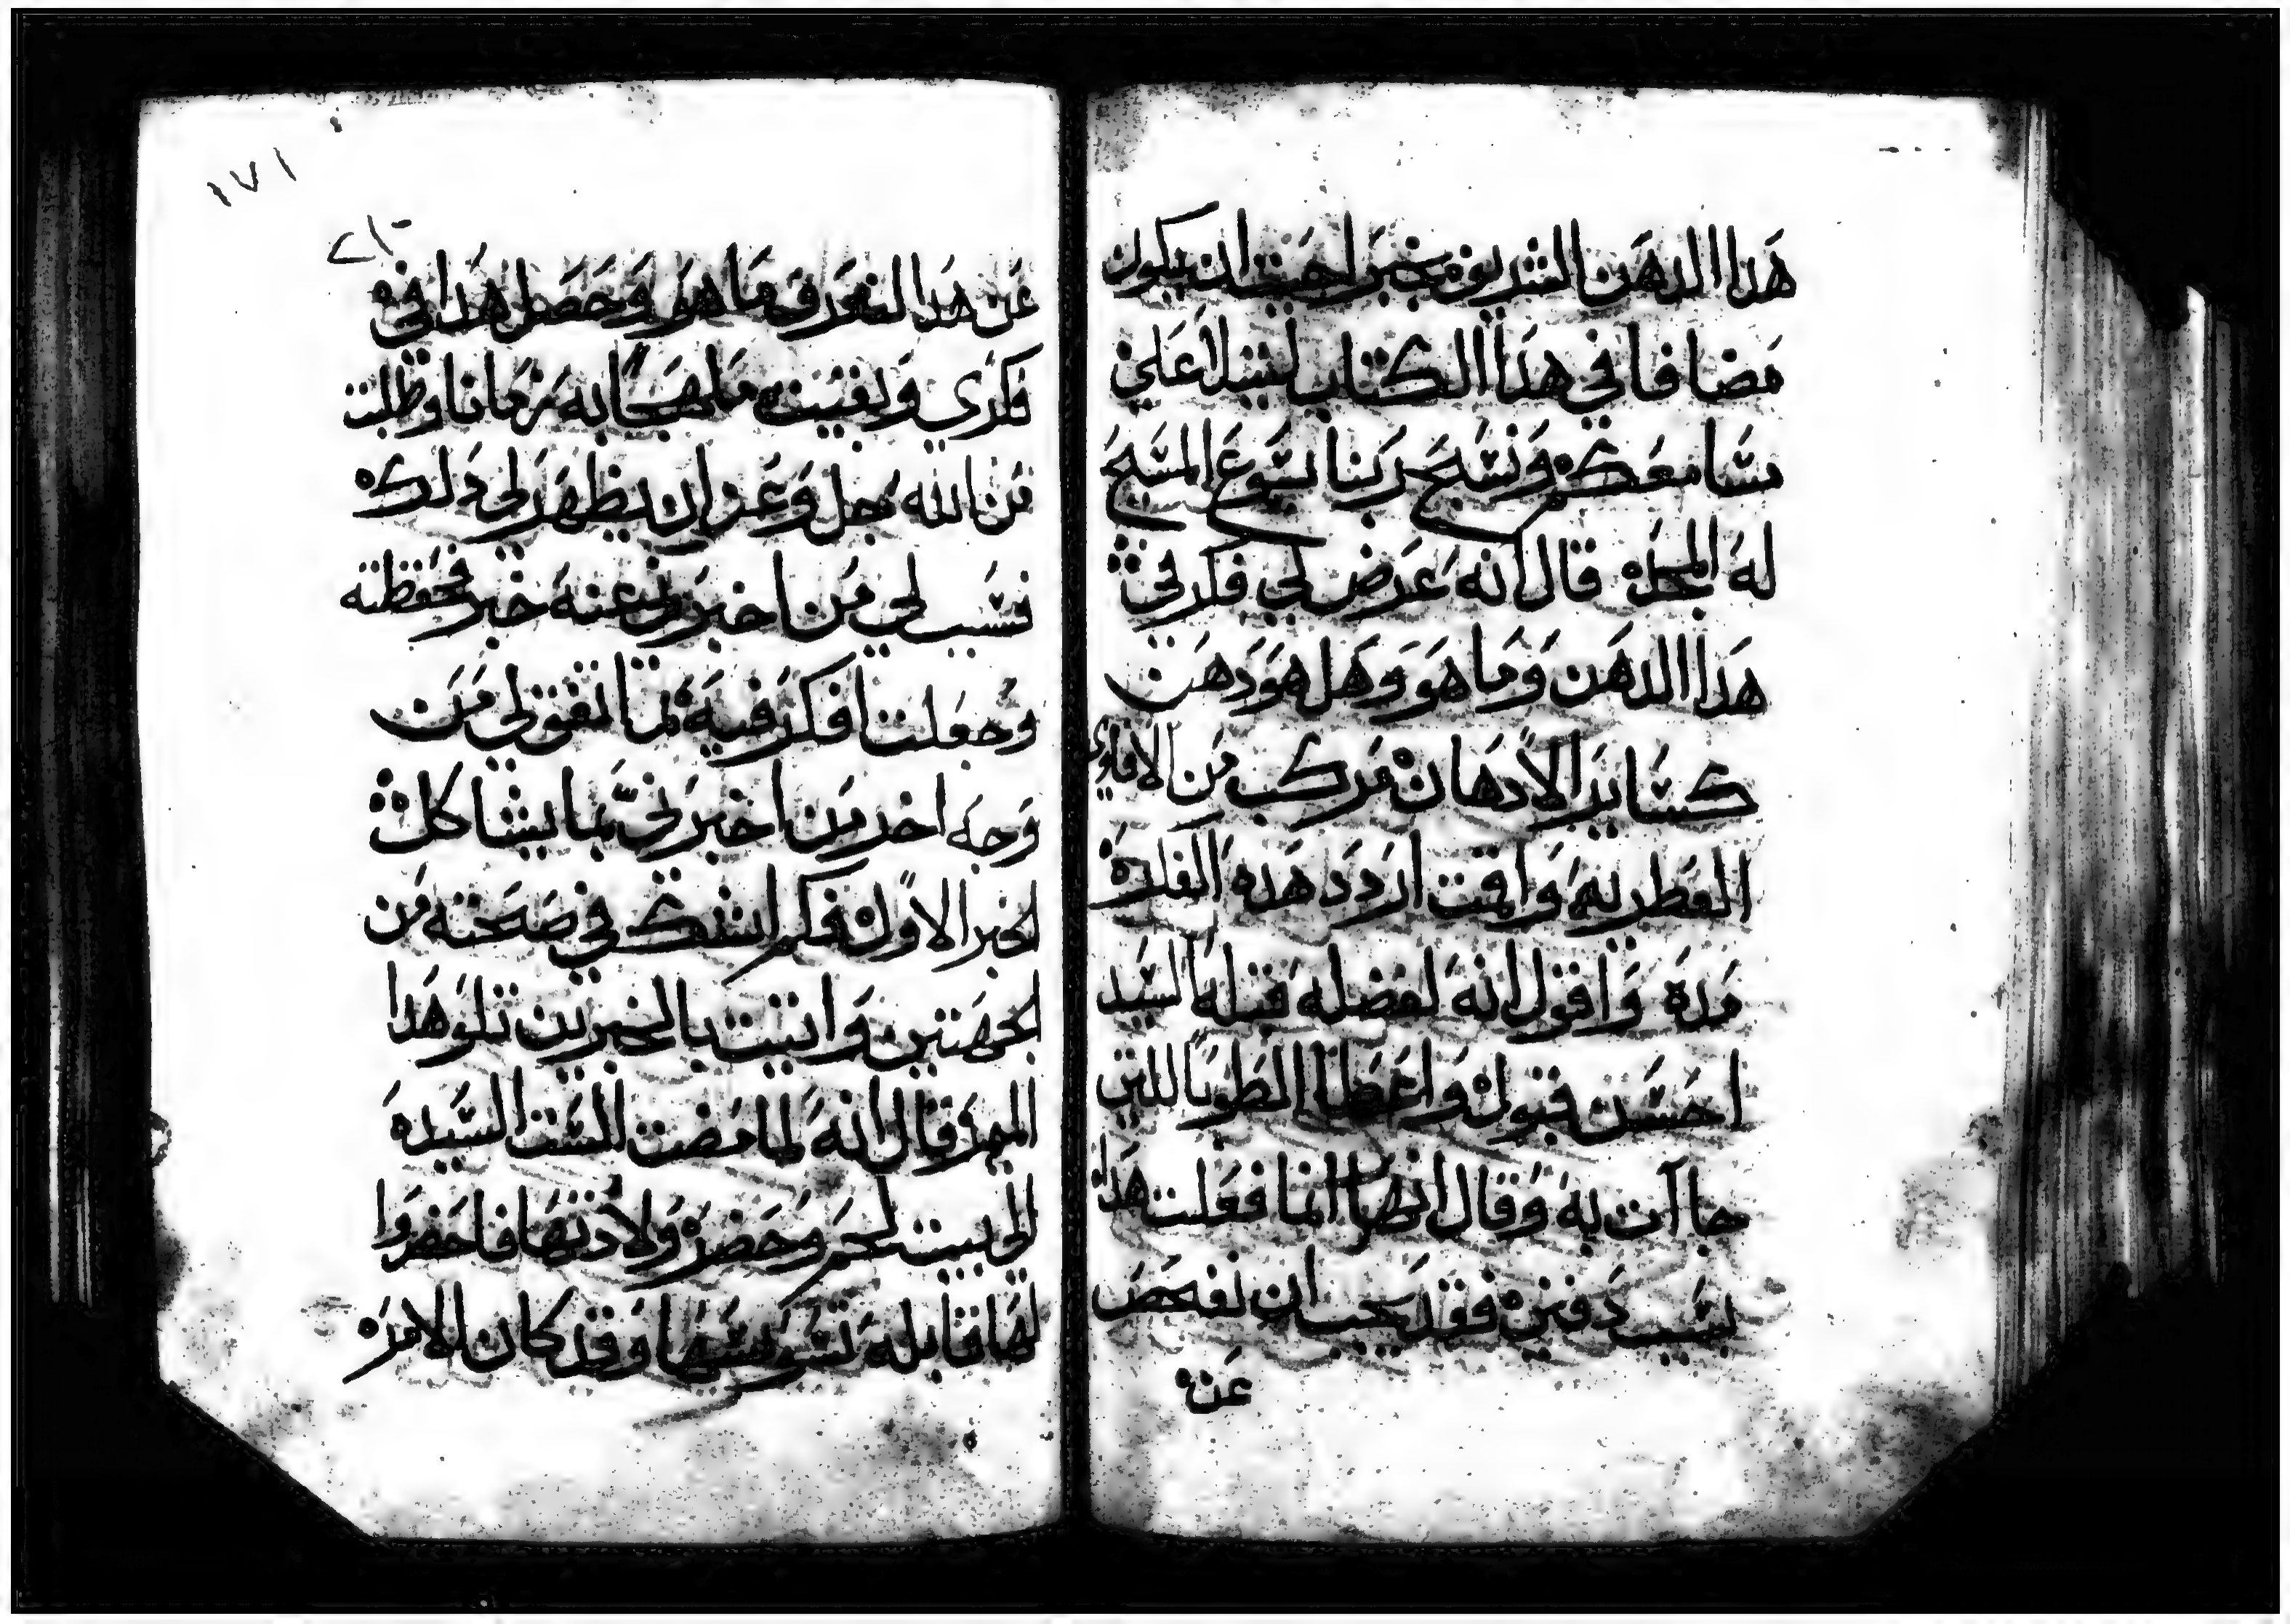 هذا الدهن الشريف بخبر احببت ان يكون
مضافا في هذا الكتاب ليتلا علي
مسامعكم ونسبح ربنا يسوع المسيح
له المجد قال انه عرض لي فكر في
هذا الدهن وما هو وهل هو دهن
كساير الادهان مركب من الافاوي
العطريه واقمت اردد هذه الفكره
مده واقول انه لفضله قبله السيد
احسن قبول واعطا الطوبا للتي
جاآت به وقال انها انما فعلت هذا
بسبب دفني فقد يجب ان نفحص
عن
١٧١
عن هذا الغرق ما هو وحصل هذا في
فكري وبقيت ملهجا به زمانا وطلبت
من الله جل وعز ان يظهر لي ذلك
فسبب لي من اخبرني عنه خبر فحفظته
وجعلت افكر فيه ثم اتفق لي من
وجه اخر من اخبرني بما يشاكل
الخبر الاول فلم اشك في صحته من
الجهتين واتيت بالخبرين تلو هذا
الميمر وقال انه لما مضت الست السيده
الي بيت لحم وحضر ولادتها فاحضروا
لها قابله تسوسها وقد كان الامر